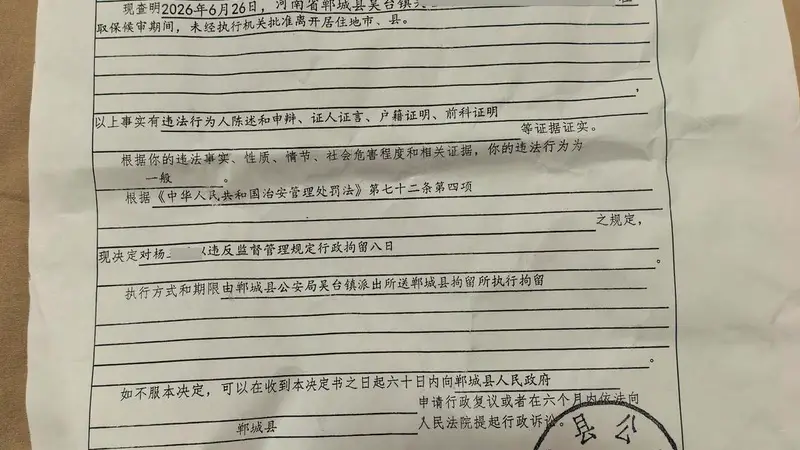 现查明2026年6月26日，河南省郸城县吴台镇
取保候审期间，未经执行机关批准离开居住地市、县。
，
以上事实有违法行为人陈述和申辩、证人证言、户籍证明、前科证明
等证据证实。
根据你的违法事实、性质、情节、社会危害程度和相关证据，你的违法行为为
一般 。
根据《中华人民共和国治安管理处罚法》第七十二条第四项
之规定，
现决定对杨 以违反监督管理规定行政拘留八日
。
执行方式和期限由郸城县公安局吴台镇派出所送郸城县拘留所执行拘留
。
如不服本决定，可以在收到本决定书之日起六十日内向郸城县人民政府
申请行政复议或者在六个月内依法向
郸城县 人民法院提起行政诉讼。
县 公